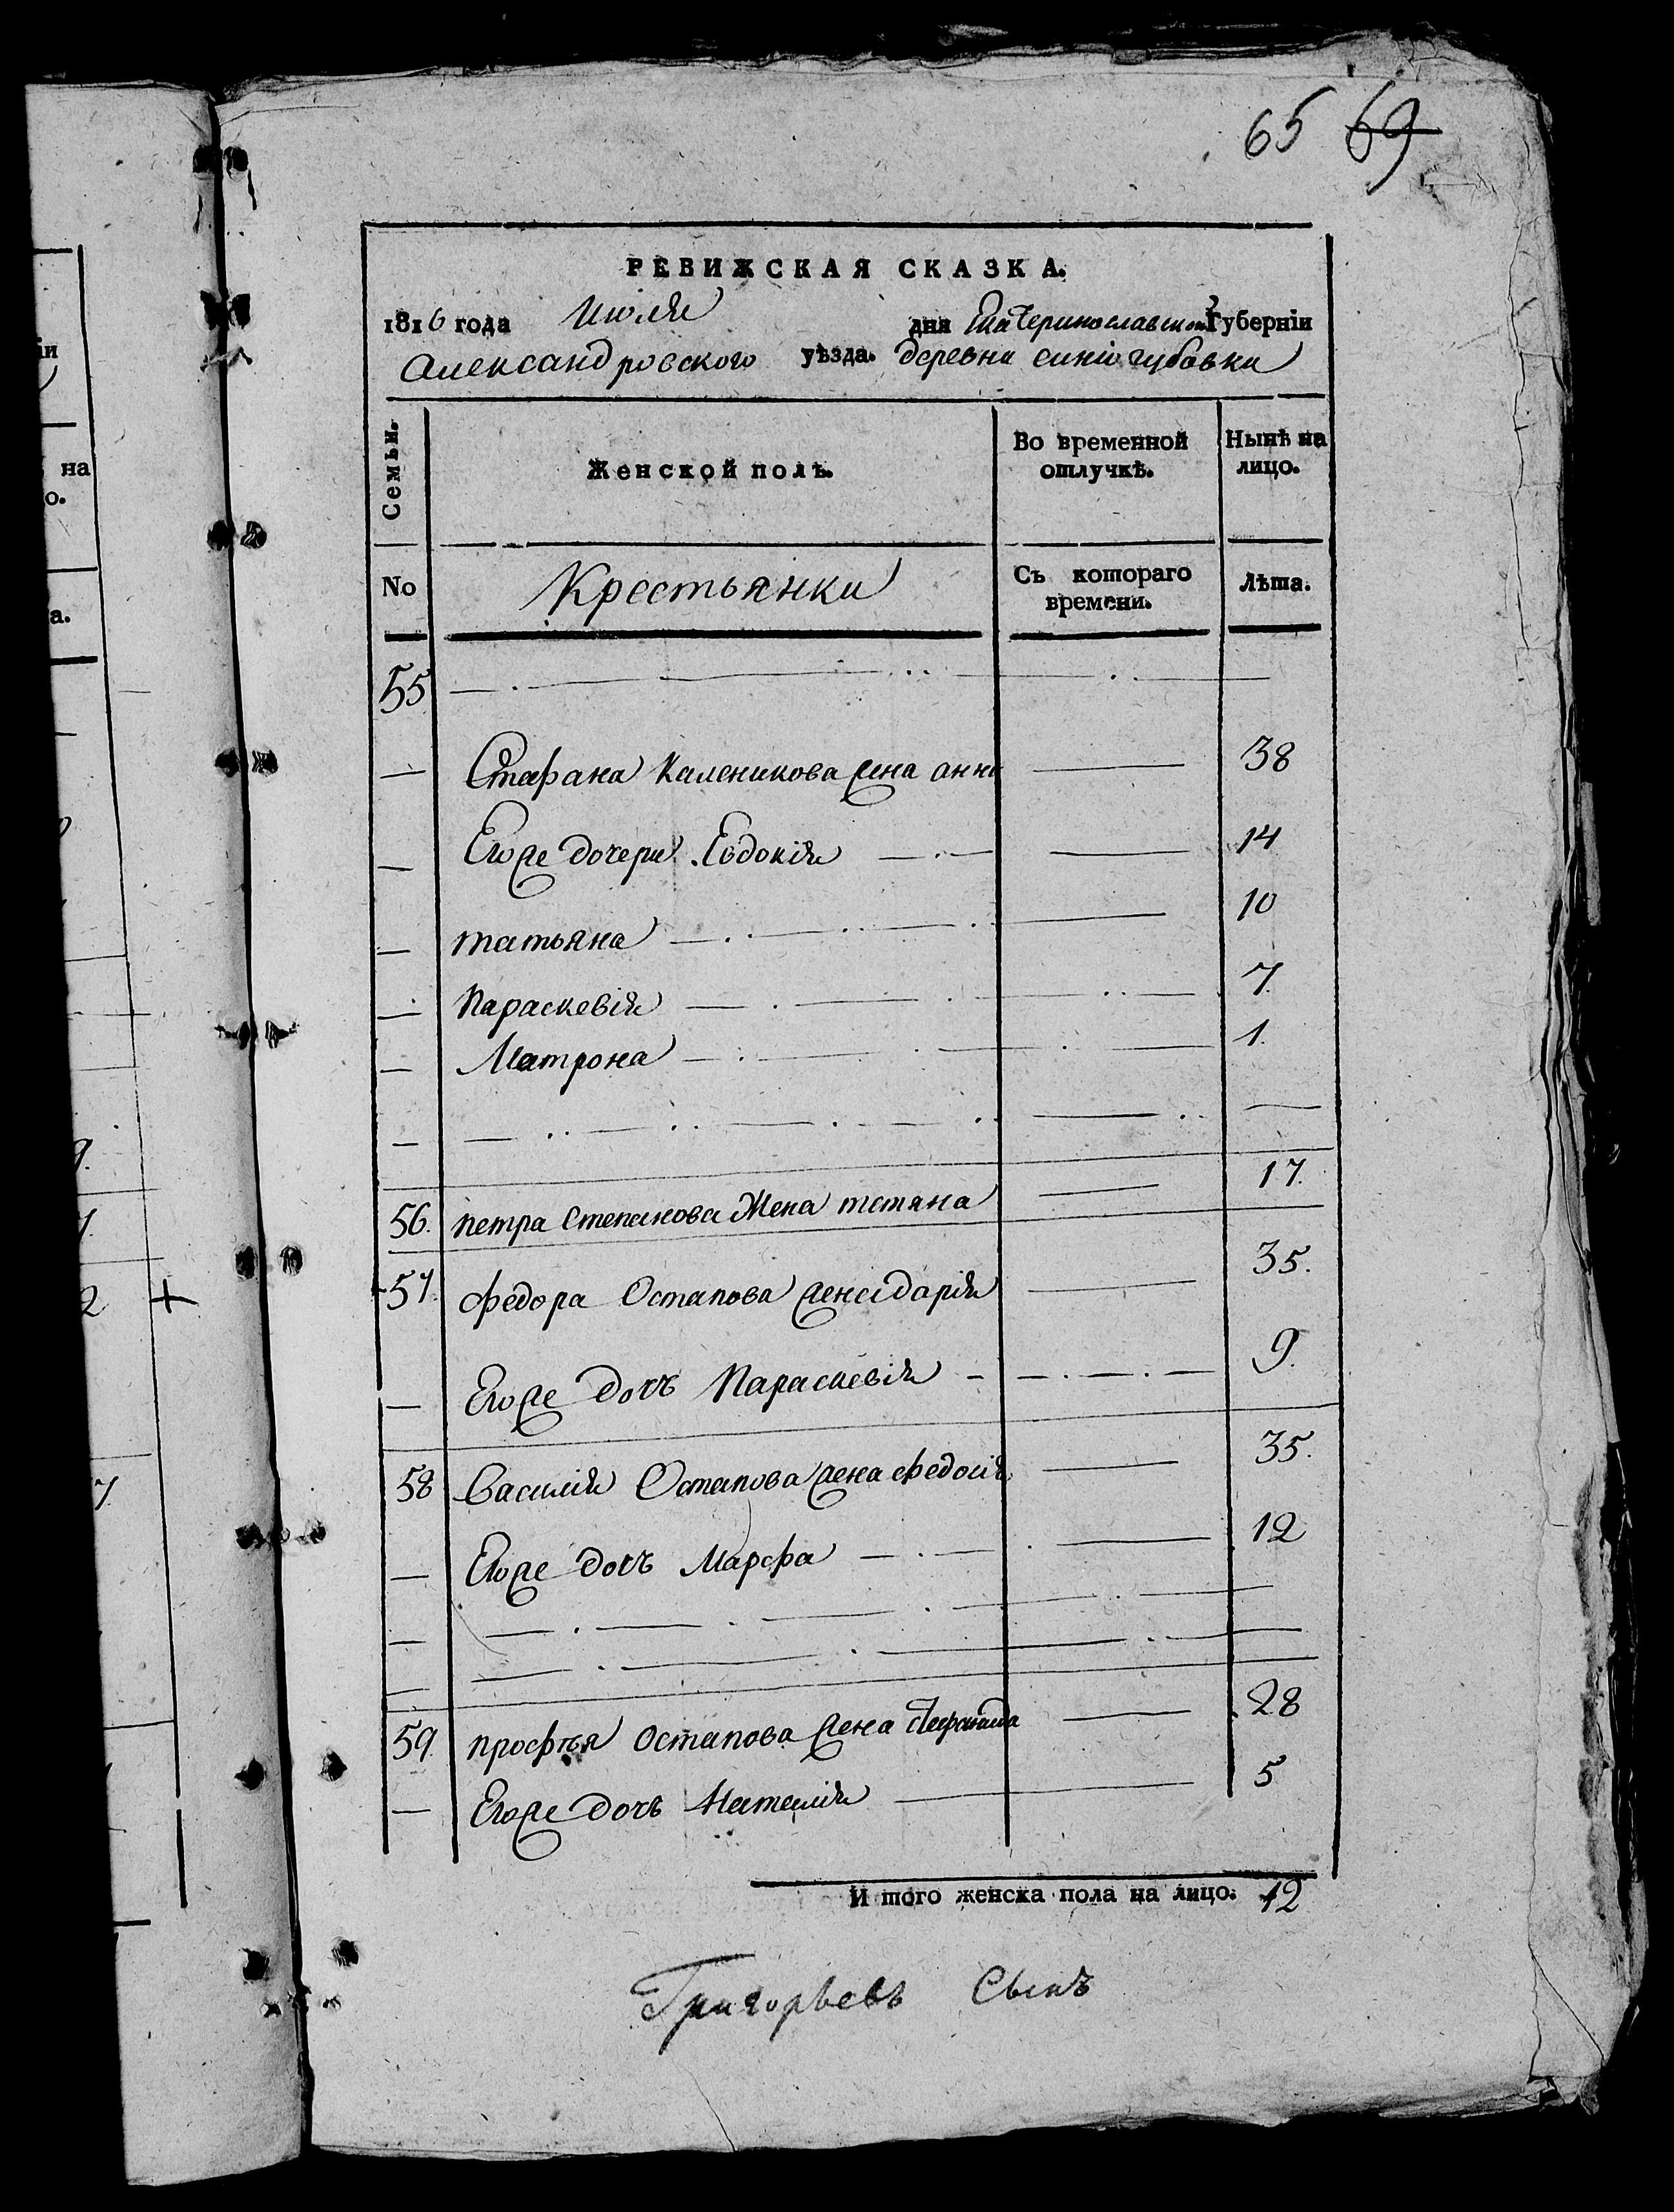 65 69
РЕВИЖСКАЯ СКАЗКА.
1816 года Июля дня Екатеринославской Губерніи
Александровского уѣзда. деревни синіогубовки
Семьи. Женской полъ. Во временной отлучкѣ. Нынѣ на лицо.
No Крестьянки Съ котораго времени. Лѣта.
55
Стефана Каленикова жена анна 38
Егоже дочери Евдокія 14
татьяна 10
Параскевія 7.
Матрона 1.
56. петра Степанова Жена татяна 17.
57. Федора Остапова жена дарія 35.
Егоже дочъ Параскевія 9.
58 Василія Остапова жена Федосія 35.
Егоже дочъ Марфа 12
59. профѣя Остапова жена 28
Егоже дочь Наталія 5
И того женска пола на лицо. 12
Григорьевъ Сынъ